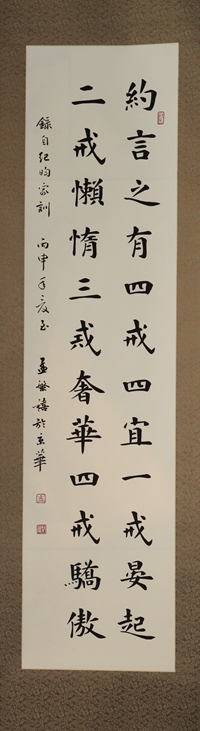 約言之有四戒四宜一戒晏起
二戒懶惰三戒奢華四戒驕傲
錄自紀昀家訓 丙申年夏至 孟繁禧於京華